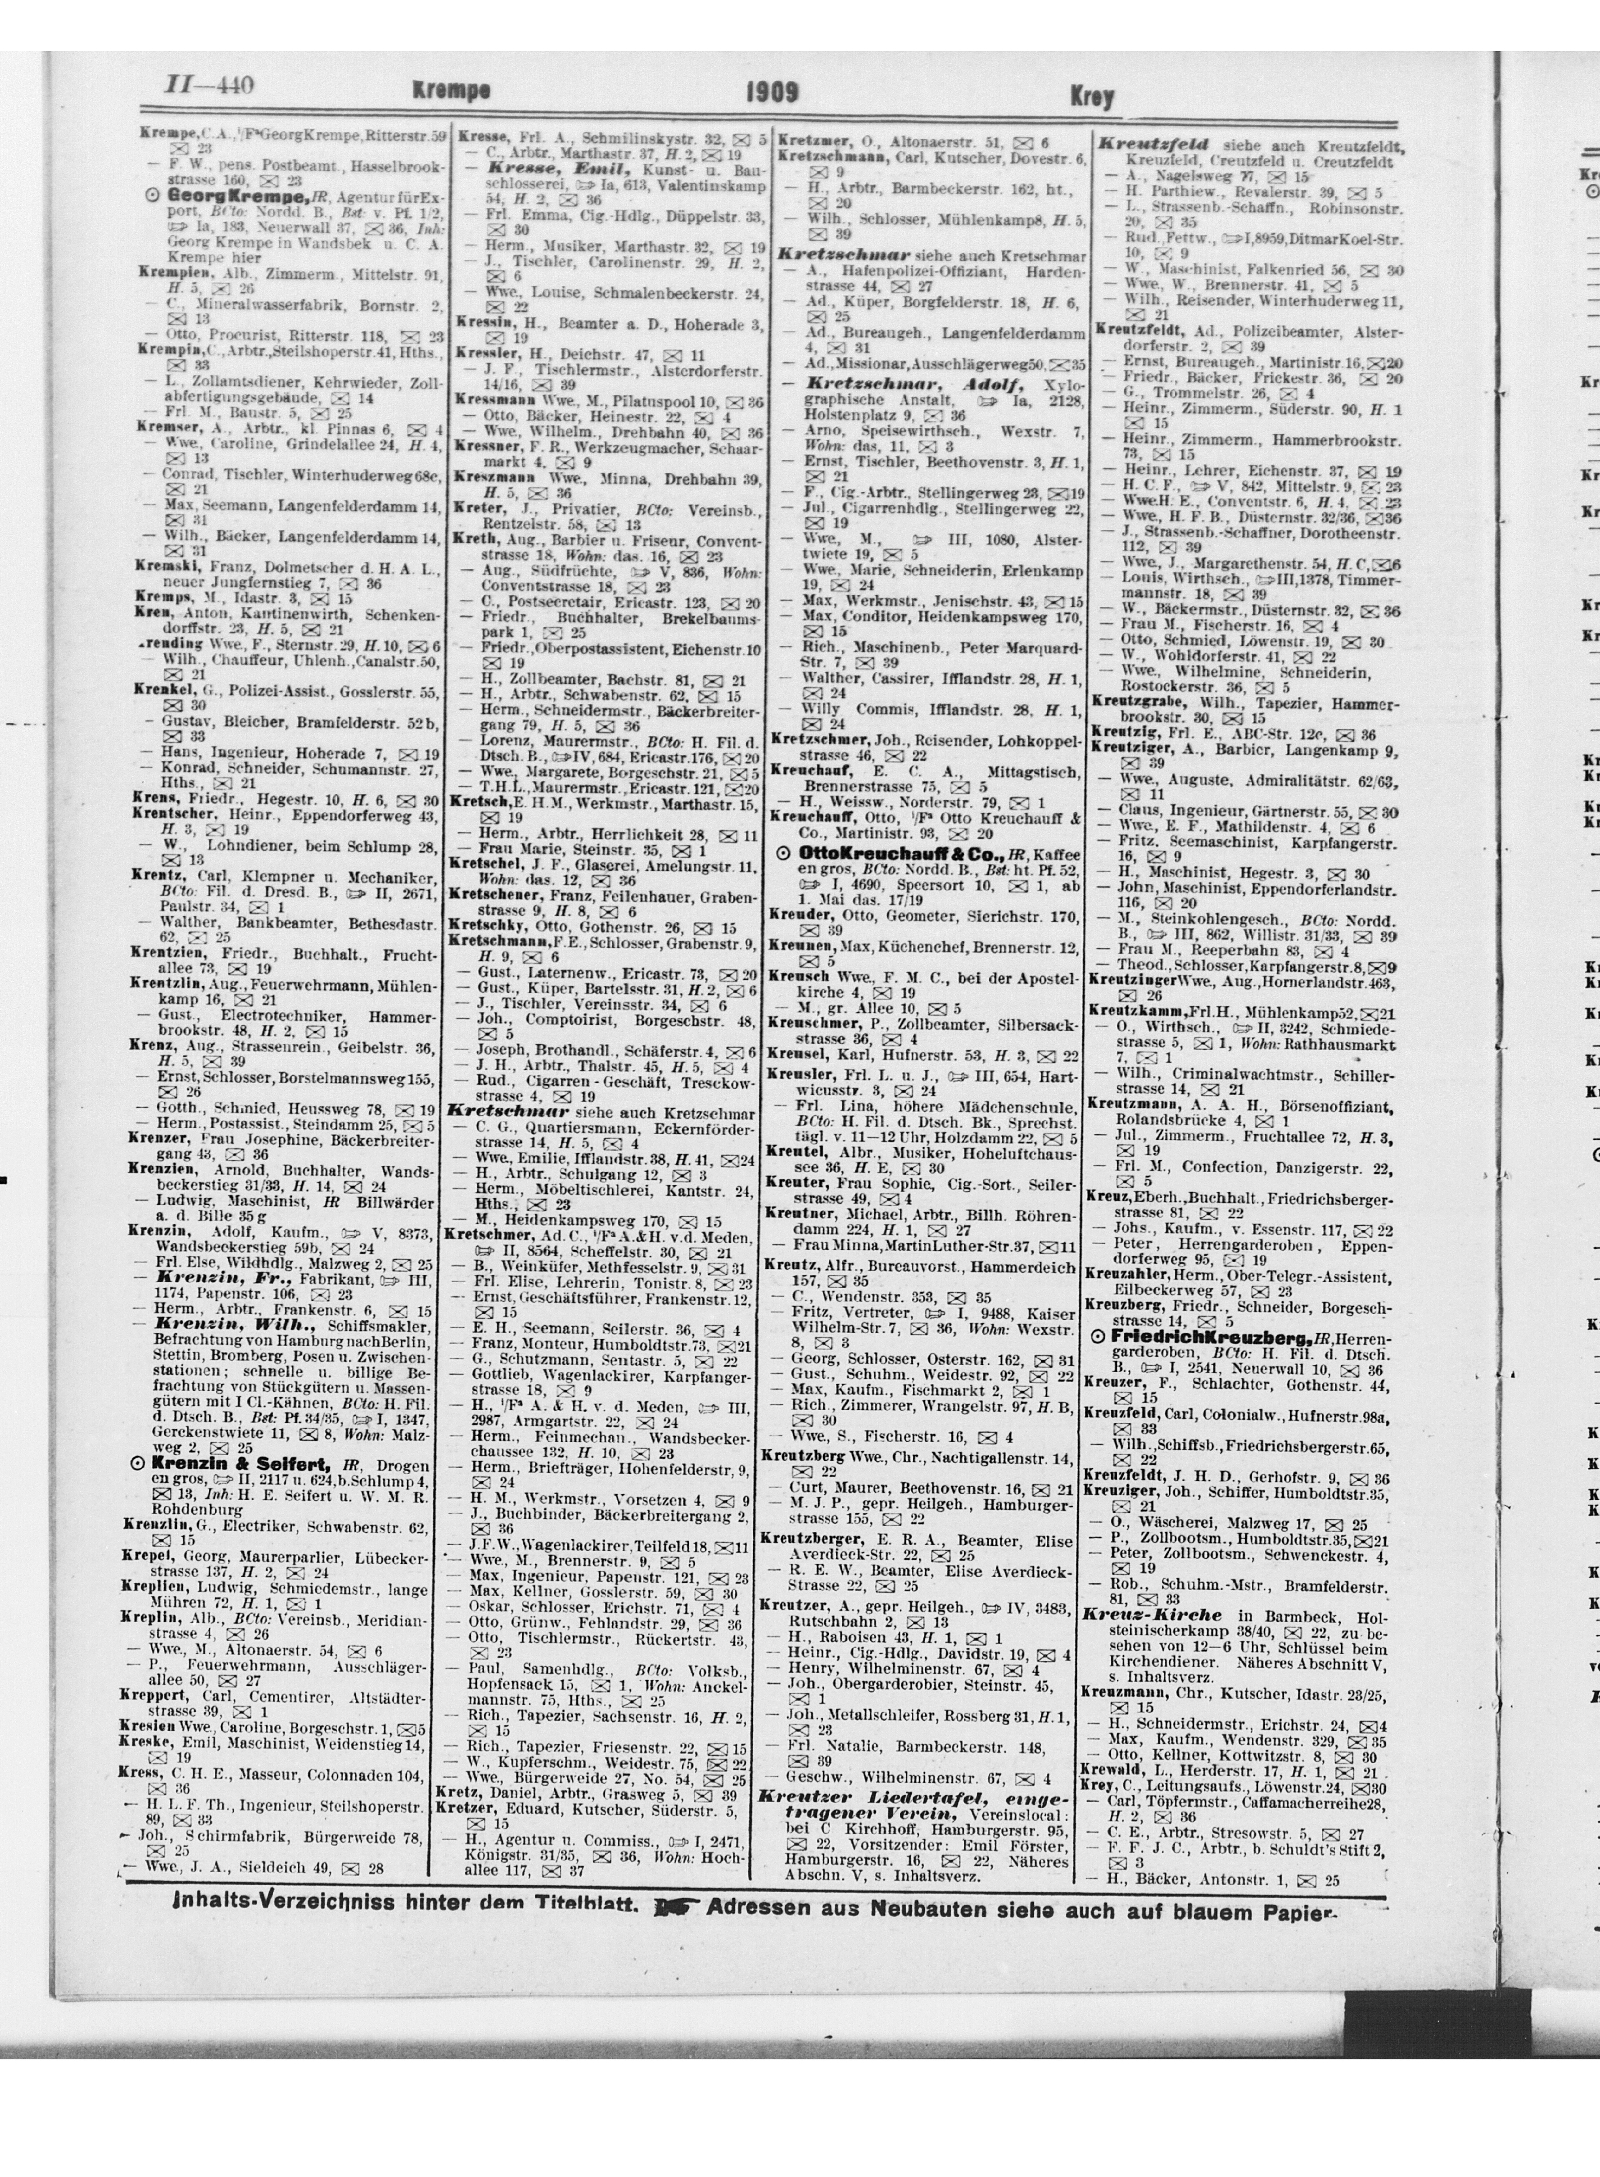 II—440 Krempe 1909 Krey
Krempe, C. A., i/Fa Georg Krempe, Ritterstr. 59
✉ 23
— F. W., pens. Postbeamt., Hasselbrook-
strasse 160, ✉ 23
⊙ Georg Krempe, HR, Agentur für Ex-
port, BCto: Nordd. B., Bst: v. Pf. 1/2,
☞ Ia, 183, Neuerwall 37, ✉ 36, Inh:
Georg Krempe in Wandsbek u. C. A.
Krempe hier
Krempien, Alb., Zimmerm., Mittelstr. 91,
H. 5, ✉ 26
— C., Mineralwasserfabrik, Bornstr. 2,
✉ 13
— Otto, Procurist, Ritterstr. 118, ✉ 23
Krempin, C., Arbtr., Steilshoperstr. 41, Hths.,
✉ 33
— L., Zollamtsdiener, Kehrwieder, Zoll-
abfertigungsgebäude, ✉ 14
— Frl. M., Baustr. 5, ✉ 25
Kremser, A., Arbtr., kl. Pinnas 6, ✉ 4
— Wwe., Caroline, Grindelallee 24, H. 4,
✉ 13
— Conrad, Tischler, Winterhuderweg 68c,
✉ 21
— Max, Seemann, Langenfelderdamm 14,
✉ 31
— Wilh., Bäcker, Langenfelderdamm 14,
✉ 31
Kremski, Franz, Dolmetscher d. H. A. L.,
neuer Jungfernstieg 7, ✉ 36
Kremps, M., Idastr. 3, ✉ 15
Kren, Anton, Kantinenwirth, Schenken-
dorffstr. 23, H. 5, ✉ 21
rending Wwe., F., Sternstr. 29, H. 10, ✉ 6
— Wilh., Chauffeur, Uhlenh., Canalstr. 50,
✉ 21
Krenkel, G., Polizei-Assist., Gosslerstr. 55,
✉ 30
— Gustav, Bleicher, Bramfelderstr. 52 b,
✉ 33
— Hans, Ingenieur, Hoherade 7, ✉ 19
— Konrad, Schneider, Schumannstr. 27,
Hths., ✉ 21
Krens, Friedr., Hegestr. 10, H. 6, ✉ 30
Krentscher, Heinr., Eppendorferweg 43,
H. 3, ✉ 19
— W., Lohndiener, beim Schlump 28,
✉ 13
Krentz, Carl, Klempner u. Mechaniker,
BCto: Fil. d. Dresd. B., ☞ II, 2671,
Paulstr. 34, ✉ 1
— Walther, Bankbeamter, Bethesdastr.
62, ✉ 25
Krentzien, Friedr., Buchhalt., Frucht-
allee 73, ✉ 19
Krentzlin, Aug., Feuerwehrmann, Mühlen-
kamp 16, ✉ 21
— Gust., Electrotechniker, Hammer-
brookstr. 48, H. 2, ✉ 15
Krenz, Aug., Strassenrein., Geibelstr. 36,
H. 5, ✉ 39
— Ernst, Schlosser, Borstelmannsweg 155,
✉ 26
— Gotth., Schmied, Heussweg 78, ✉ 19
— Herm., Postassist., Steindamm 25, ✉ 5
Krenzer, Frau Josephine, Bäckerbreiter-
gang 43, ✉ 36
Krenzien, Arnold, Buchhalter, Wands-
beckerstieg 31/33, H. 14, ✉ 24
— Ludwig, Maschinist, HR Billwärder
a. d. Bille 35 g
Krenzin, Adolf, Kaufm., ☞ V, 8373,
Wandsbeckerstieg 59b, ✉ 24
— Frl. Else, Wildhdlg., Malzweg 2, ✉ 25
— Krenzin, Fr., Fabrikant, ☞ III,
1174, Papenstr. 106, ✉ 23
— Herm., Arbtr., Frankenstr. 6, ✉ 15
— Krenzin, Wilh., Schiffsmakler,
Befrachtung von Hamburg nach Berlin,
Stettin, Bromberg, Posen u. Zwischen-
stationen; schnelle u. billige Be-
frachtung von Stückgütern u. Massen-
gütern mit I Cl.-Kähnen, BCto: H. Fil.
d. Dtsch. B., Bst: Pf. 34/35, ☞ I, 1347,
Gerckenstwiete 11, ✉ 8, Wohn: Malz-
weg 2, ✉ 25
⊙ Krenzin & Seifert, HR, Drogen
en gros, ☞ II, 2117 u. 624, b. Schlump 4,
✉ 13, Inh: H. E. Seifert u. W. M. R.
Rohdenburg
Krenzlin, G., Electriker, Schwabenstr. 62,
✉ 15
Krepel, Georg, Maurerparlier, Lübecker-
strasse 137, H. 2, ✉ 24
Kreplien, Ludwig, Schmiedemstr., lange
Mühren 72, H. 1, ✉ 1
Kreplin, Alb., BCto: Vereinsb., Meridian-
strasse 4, ✉ 26
— Wwe., M., Altonaerstr. 54, ✉ 6
— P., Feuerwehrmann, Ausschläger-
allee 50, ✉ 27
Kreppert, Carl, Cementirer, Altstädter-
strasse 39, ✉ 1
Kresien Wwe., Caroline, Borgeschstr. 1, ✉ 5
Kreske, Emil, Maschinist, Weidenstieg 14,
✉ 19
Kress, C. H. E., Masseur, Colonnaden 104,
✉ 36
— H. L. F. Th., Ingenieur, Steilshoperstr.
89, ✉ 33
— Joh., Schirmfabrik, Bürgerweide 78,
✉ 25
— Wwe., J. A., Sieldeich 49, ✉ 28
Kresse, Frl. A., Schmilinskystr. 32, ✉ 5
— C., Arbtr., Marthastr. 37, H. 2, ✉ 19
— Kresse, Emil, Kunst- u. Bau-
schlosserei, ☞ Ia, 613, Valentinskamp
54, H. 2, ✉ 36
— Frl. Emma, Cig.-Hdlg., Düppelstr. 33,
✉ 30
— Herm., Musiker, Marthastr. 32, ✉ 19
— J., Tischler, Carolinenstr. 29, H. 2,
✉ 6
— Wwe., Louise, Schmalenbeckerstr. 24,
✉ 22
Kressin, H., Beamter a. D., Hoherade 3,
✉ 19
Kressler, H., Deichstr. 47, ✉ 11
— J. F., Tischlermstr., Alsterdorferstr.
14/16, ✉ 39
Kressmann Wwe., M., Pilatuspool 10, ✉ 36
— Otto, Bäcker, Heinestr. 22, ✉ 4
— Wwe., Wilhelm., Drehbahn 40, ✉ 36
Kressner, F. R., Werkzeugmacher, Schaar-
markt 4, ✉ 9
Kreszmann Wwe., Minna, Drehbahn 39,
H. 5, ✉ 36
Kreter, J., Privatier, BCto: Vereinsb.,
Rentzelstr. 58, ✉ 13
Kreth, Aug., Barbier u. Friseur, Convent-
strasse 18, Wohn: das. 16, ✉ 23
— Aug., Südfrüchte, ☞ V, 836, Wohn:
Conventstrasse 18, ✉ 23
— C., Postsecretair, Ericastr. 123, ✉ 20
— Friedr., Buchhalter, Brekelbaums-
park 1, ✉ 25
— Friedr., Oberpostassistent, Eichenstr. 10
✉ 19
— H., Zollbeamter, Bachstr. 81, ✉ 21
— H., Arbtr., Schwabenstr. 62, ✉ 15
— Herm., Schneidermstr., Bäckerbreiter-
gang 79, H. 5, ✉ 36
— Lorenz, Maurermstr., BCto: H. Fil. d.
Dtsch. B., ☞ IV, 684, Ericastr. 176, ✉ 20
— Wwe., Margarete, Borgeschstr. 21, ✉ 5
— T. H. L., Maurermstr., Ericastr. 121, ✉ 20
Kretsch, E. H. M., Werkmstr., Marthastr. 15,
✉ 19
— Herm., Arbtr., Herrlichkeit 28, ✉ 11
— Frau Marie, Steinstr. 35, ✉ 1
Kretschel, J. F., Glaserei, Amelungstr. 11,
Wohn: das. 12, ✉ 36
Kretschener, Franz, Feilenhauer, Graben-
strasse 9, H. 8, ✉ 6
Kretschky, Otto, Gothenstr. 26, ✉ 15
Kretschmann, F. E., Schlosser, Grabenstr. 9,
H. 9, ✉ 6
— Gust., Laternenw., Ericastr. 73, ✉ 20
— Gust., Küper, Bartelsstr. 31, H. 2, ✉ 6
— J., Tischler, Vereinsstr. 34, ✉ 6
— Joh., Comptoirist, Borgeschstr. 48,
✉ 5
— Joseph, Brothandl., Schäferstr. 4, ✉ 6
— J. H., Arbtr., Thalstr. 45, H. 5, ✉ 4
— Rud., Cigarren-Geschäft, Tresckow-
strasse 4, ✉ 19
Kretschmar siehe auch Kretzschmar
— C. G., Quartiersmann, Eckernförder-
strasse 14, H. 5, ✉ 4
— Wwe., Emilie, Ifflandstr. 38, H. 41, ✉ 24
— H., Arbtr., Schulgang 12, ✉ 3
— Herm., Möbeltischlerei, Kantstr. 24,
Hths., ✉ 23
— M., Heidenkampsweg 170, ✉ 15
Kretschmer, Ad. C., i/Fa A. & H. v. d. Meden,
☞ II, 8564, Scheffelstr. 30, ✉ 21
— B., Weinküfer, Methfesselstr. 9, ✉ 31
— Frl. Elise, Lehrerin, Tonistr. 8, ✉ 23
— Ernst, Geschäftsführer, Frankenstr. 12,
✉ 15
— E. H., Seemann, Seilerstr. 36, ✉ 4
— Franz, Monteur, Humboldtstr. 73, ✉ 21
— G., Schutzmann, Sentastr. 5, ✉ 22
— Gottlieb, Wagenlackirer, Karpfanger-
strasse 18, ✉ 9
— H., i/Fa A. & H. v. d. Meden, ☞ III,
2987, Armgartstr. 22, ✉ 24
— Herm., Feinmechan., Wandsbecker-
chaussee 132, H. 10, ✉ 23
— Herm., Briefträger, Hohenfelderstr. 9,
✉ 24
— H. M., Werkmstr., Vorsetzen 4, ✉ 9
— J., Buchbinder, Bäckerbreitergang 2,
✉ 36
— J. F. W., Wagenlackirer, Teilfeld 18, ✉ 11
— Wwe., M., Brennerstr. 9, ✉ 5
— Max, Ingenieur, Papenstr. 121, ✉ 23
— Max, Kellner, Gosslerstr. 59, ✉ 30
— Oskar, Schlosser, Erichstr. 71, ✉ 4
— Otto, Grünw., Fehlandstr. 29, ✉ 36
— Otto, Tischlermstr., Rückertstr. 43,
✉ 23
— Paul, Samenhdlg., BCto: Volksb.,
Hopfensack 15, ✉ 1, Wohn: Anckel-
mannstr. 75, Hths., ✉ 25
— Rich., Tapezier, Sachsenstr. 16, H. 2,
✉ 15
— Rich., Tapezier, Friesenstr. 22, ✉ 15
— W., Kupferschm., Weidestr. 75, ✉ 22
— Wwe., Bürgerweide 27, No. 54, ✉ 25
Kretz, Daniel, Arbtr., Grasweg 5, ✉ 39
Kretzer, Eduard, Kutscher, Süderstr. 5,
✉ 15
— H., Agentur u. Commiss., ☞ I, 2471,
Königstr. 31/35, ✉ 36, Wohn: Hoch-
allee 117, ✉ 37
Kretzmer, O., Altonaerstr. 51, ✉ 6
Kretzschmann, Carl, Kutscher, Dovestr. 6,
✉ 9
— H., Arbtr., Barmbeckerstr. 162, ht.,
✉ 20
— Wilh., Schlosser, Mühlenkamp 8, H. 5,
✉ 39
Kretzschmar siehe auch Kretschmar
— A., Hafenpolizei-Offiziant, Harden-
strasse 44, ✉ 27
— Ad., Küper, Borgfelderstr. 18, H. 6,
✉ 25
— Ad., Bureaugeh., Langenfelderdamm
4, ✉ 31
— Ad., Missionar, Ausschlägerweg 50, ✉ 35
— Kretzschmar, Adolf, Xylo-
graphische Anstalt, ☞ Ia, 2128,
Holstenplatz 9, ✉ 36
— Arno, Speisewirthsch., Wexstr. 7,
Wohn: das. 11, ✉ 3
— Ernst, Tischler, Beethovenstr. 3, H. 1,
✉ 21
— F., Cig.-Arbtr., Stellingerweg 23, ✉ 19
— Jul., Cigarrenhdlg., Stellingerweg 22,
✉ 19
— Wwe., M., ☞ III, 1080, Alster-
twiete 19, ✉ 5
— Wwe., Marie, Schneiderin, Erlenkamp
19, ✉ 24
— Max, Werkmstr., Jenischstr. 43, ✉ 15
— Max, Conditor, Heidenkampsweg 170,
✉ 15
— Rich., Maschinenb., Peter Marquard-
Str. 7, ✉ 39
— Walther, Cassirer, Ifflandstr. 28, H. 1,
✉ 24
— Willy Commis, Ifflandstr. 28, H. 1,
✉ 24
Kretzschmer, Joh., Reisender, Lohkoppel-
strasse 46, ✉ 22
Kreuchauf, E. C. A., Mittagstisch,
Brennerstrasse 75, ✉ 5
— H., Weissw., Norderstr. 79, ✉ 1
Kreuchauff, Otto, i/Fa Otto Kreuchauff &
Co., Martinistr. 93, ✉ 20
⊙ Otto Kreuchauff & Co., HR, Kaffee
en gros, BCto: Nordd. B., Bst: ht. Pf. 52,
☞ I, 4690, Speersort 10, ✉ 1, ab
1. Mai das. 17/19
Kreuder, Otto, Geometer, Sierichstr. 170,
✉ 39
Kreunen, Max, Küchenchef, Brennerstr. 12,
✉ 5
Kreusch Wwe., F. M. C., bei der Apostel-
kirche 4, ✉ 19
— M., gr. Allee 10, ✉ 5
Kreuschmer, P., Zollbeamter, Silbersack-
strasse 36, ✉ 4
Kreusel, Karl, Hufnerstr. 53, H. 3, ✉ 22
Kreusler, Frl. L. u. J., ☞ III, 654, Hart-
wicusstr. 3, ✉ 24
— Frl. Lina, höhere Mädchenschule,
BCto: H. Fil. d. Dtsch. Bk., Sprechst.
tägl. v. 11—12 Uhr, Holzdamm 22, ✉ 5
Kreutel, Albr., Musiker, Hoheluftchaus-
see 36, H. E, ✉ 30
Kreuter, Frau Sophie, Cig.-Sort., Seiler-
strasse 49, ✉ 4
Kreutner, Michael, Arbtr., Billh. Röhren-
damm 224, H. 1, ✉ 27
— Frau Minna, Martin Luther-Str. 37, ✉ 11
Kreutz, Alfr., Bureauvorst., Hammerdeich
157, ✉ 35
— C., Wendenstr. 353, ✉ 35
— Fritz, Vertreter, ☞ I, 9488, Kaiser
Wilhelm-Str. 7, ✉ 36, Wohn: Wexstr.
8, ✉ 3
— Georg, Schlosser, Osterstr. 162, ✉ 31
— Gust., Schuhm., Weidestr. 92, ✉ 22
— Max, Kaufm., Fischmarkt 2, ✉ 1
— Rich., Zimmerer, Wrangelstr. 97, H. B,
✉ 30
— Wwe., S., Fischerstr. 16, ✉ 4
Kreutzberg Wwe., Chr., Nachtigallenstr. 14,
✉ 22
— Curt, Maurer, Beethovenstr. 16, ✉ 21
— M. J. P., gepr. Heilgeh., Hamburger-
strasse 155, ✉ 22
Kreutzberger, E. R. A., Beamter, Elise
Averdieck-Str. 22, ✉ 25
— R. E. W., Beamter, Elise Averdieck-
Strasse 22, ✉ 25
Kreutzer, A., gepr. Heilgeh., ☞ IV, 3483,
Rutschbahn 2, ✉ 13
— H., Raboisen 43, H. 1, ✉ 1
— Heinr., Cig.-Hdlg., Davidstr. 19, ✉ 4
— Henry, Wilhelminenstr. 67, ✉ 4
— Joh., Obergarderobier, Steinstr. 45,
✉ 1
— Joh., Metallschleifer, Rossberg 31, H. 1,
✉ 23
— Frl. Natalie, Barmbeckerstr. 148,
✉ 39
— Geschw., Wilhelminenstr. 67, ✉ 4
Kreutzer Liedertafel, einge-
tragener Verein, Vereinslocal:
bei C Kirchhoff, Hamburgerstr. 95,
✉ 22, Vorsitzender: Emil Förster,
Hamburgerstr. 16, ✉ 22, Näheres
Abschn. V, s. Inhaltsverz.
Kreutzfeld siehe auch Kreutzfeldt,
Kreuzfeld, Creutzfeld u. Creutzfeldt
— A., Nagelsweg 77, ✉ 15
— H. Parthiew., Revalerstr. 39, ✉ 5
— L., Strassenb.-Schaffn., Robinsonstr.
20, ✉ 35
— Rud., Fettw., ☞ I, 8959, Ditmar Koel-Str.
10, ✉ 9
— W., Maschinist, Falkenried 56, ✉ 30
— Wwe., W., Brennerstr. 41, ✉ 5
— Wilh., Reisender, Winterhuderweg 11,
✉ 21
Kreutzfeldt, Ad., Polizeibeamter, Alster-
dorferstr. 2, ✉ 39
— Ernst, Bureaugeh., Martinistr. 16, ✉ 20
— Friedr., Bäcker, Frickestr. 36, ✉ 20
— G., Trommelstr. 26, ✉ 4
— Heinr., Zimmerm., Süderstr. 90, H. 1
✉ 15
— Heinr., Zimmerm., Hammerbrookstr.
73, ✉ 15
— Heinr., Lehrer, Eichenstr. 37, ✉ 19
— H. C. F., ☞ V, 842, Mittelstr. 9, ✉ 23
— Wwe. H. E., Conventstr. 6, H. 4, ✉ 23
— Wwe., H. F. B., Düsternstr. 32/36, ✉ 36
— J., Strassenb.-Schaffner, Dorotheenstr.
112, ✉ 39
— Wwe., J., Margarethenstr. 54, H. C, ✉ 6
— Louis, Wirthsch., ☞ III, 1378, Timmer-
mannstr. 18, ✉ 39
— W., Bäckermstr., Düsternstr. 32, ✉ 36
— Frau M., Fischerstr. 16, ✉ 4
— Otto, Schmied, Löwenstr. 19, ✉ 30
— W., Wohldorferstr. 41, ✉ 22
— Wwe., Wilhelmine, Schneiderin,
Rostockerstr. 36, ✉ 5
Kreutzgrabe, Wilh., Tapezier, Hammer-
brookstr. 30, ✉ 15
Kreutzig, Frl. E., ABC-Str. 12c, ✉ 36
Kreutziger, A., Barbier, Langenkamp 9,
✉ 39
— Wwe., Auguste, Admiralitätstr. 62/63,
✉ 11
— Claus, Ingenieur, Gärtnerstr. 55, ✉ 30
— Wwe., E. F., Mathildenstr. 4, ✉ 6
— Fritz, Seemaschinist, Karpfangerstr.
16, ✉ 9
— H., Maschinist, Hegestr. 3, ✉ 30
— John, Maschinist, Eppendorferlandstr.
116, ✉ 20
— M., Steinkohlengesch., BCto: Nordd.
B., ☞ III, 862, Willistr. 31/33, ✉ 39
— Frau M., Reeperbahn 83, ✉ 4
— Theod., Schlosser, Karpfangerstr. 8, ✉ 9
Kreutzinger Wwe., Aug., Hornerlandstr. 463,
✉ 26
Kreutzkamm, Frl. H., Mühlenkamp 52, ✉ 21
— O., Wirthsch., ☞ II, 3242, Schmiede-
strasse 5, ✉ 1, Wohn: Rathhausmarkt
7, ✉ 1
— Wilh., Criminalwachtmstr., Schiller-
strasse 14, ✉ 21
Kreutzmann, A. A. H., Börsenoffiziant,
Rolandsbrücke 4, ✉ 1
— Jul., Zimmerm., Fruchtallee 72, H. 3,
✉ 19
— Frl. M., Confection, Danzigerstr. 22,
✉ 5
Kreuz, Eberh., Buchhalt., Friedrichsberger-
strasse 81, ✉ 22
— Johs., Kaufm., v. Essenstr. 117, ✉ 22
— Peter, Herrengarderoben, Eppen-
dorferweg 95, ✉ 19
Kreuzahler, Herm., Ober-Telegr.-Assistent,
Eilbeckerweg 57, ✉ 23
Kreuzberg, Friedr., Schneider, Borgesch-
strasse 14, ✉ 5
⊙ Friedrich Kreuzberg, HR, Herren-
garderoben, BCto: H. Fil. d. Dtsch.
B., ☞ I, 2541, Neuerwall 10, ✉ 36
Kreuzer, F., Schlachter, Gothenstr. 44,
✉ 15
Kreuzfeld, Carl, Colonialw., Hufnerstr. 98a,
✉ 33
— Wilh., Schiffsb., Friedrichsbergerstr. 65,
✉ 22
Kreuzfeldt, J. H. D., Gerhofstr. 9, ✉ 36
Kreuziger, Joh., Schiffer, Humboldtstr. 35,
✉ 21
— O., Wäscherei, Malzweg 17, ✉ 25
— P., Zollbootsm., Humboldtstr. 35, ✉ 21
— Peter, Zollbootsm., Schwenckestr. 4,
✉ 19
— Rob., Schuhm.-Mstr., Bramfelderstr.
81, ✉ 33
Kreuz-Kirche in Barmbeck, Hol-
steinischerkamp 38/40, ✉ 22, zu be-
sehen von 12—6 Uhr, Schlüssel beim
Kirchendiener. Näheres Abschnitt V,
s. Inhaltsverz.
Kreuzmann, Chr., Kutscher, Idastr. 23/25,
✉ 15
— H., Schneidermstr., Erichstr. 24, ✉ 4
— Max, Kaufm., Wendenstr. 329, ✉ 35
— Otto, Kellner, Kottwitzstr. 8, ✉ 30
Krewald, L., Herderstr. 17, H. 1, ✉ 21
Krey, C., Leitungsaufs., Löwenstr. 24, ✉ 30
— Carl, Töpfermstr., Caffamacherreihe 28,
H. 2, ✉ 36
— C. E., Arbtr., Stresowstr. 5, ✉ 27
— F. F. J. C., Arbtr., b. Schuldt's Stift 2,
✉ 3
— H., Bäcker, Antonstr. 1, ✉ 25
Inhalts-Verzeichniss hinter dem Titelblatt. ☛ Adressen aus Neubauten siehe auch auf blauem Papier.